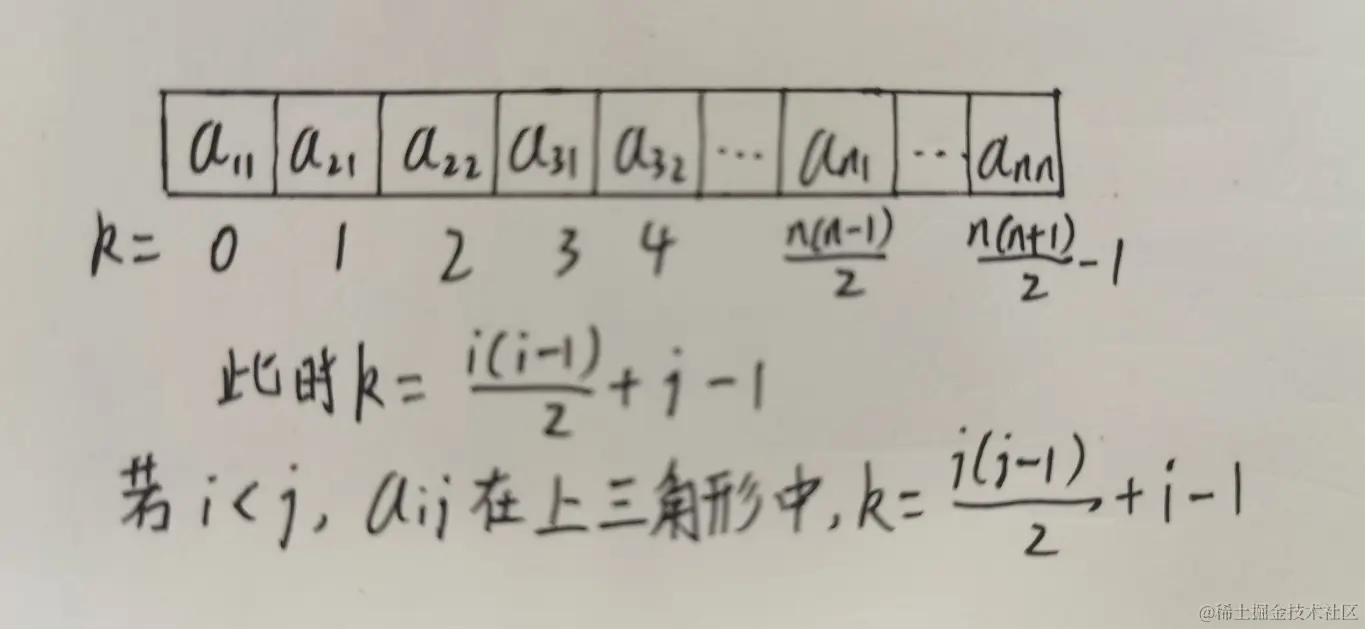 a₁₁ a₂₁ a₂₂ a₃₁ a₃₂ … aₙ₁ … aₙₙ
k= 0 1 2 3 4 n(n-1)/2 n(n+1)/2 -1
此时k= i(i-1)/2 + j - 1
若i<j, aij在上三角形中,k= j(j-1)/2 + i - 1
@稀土掘金技术社区